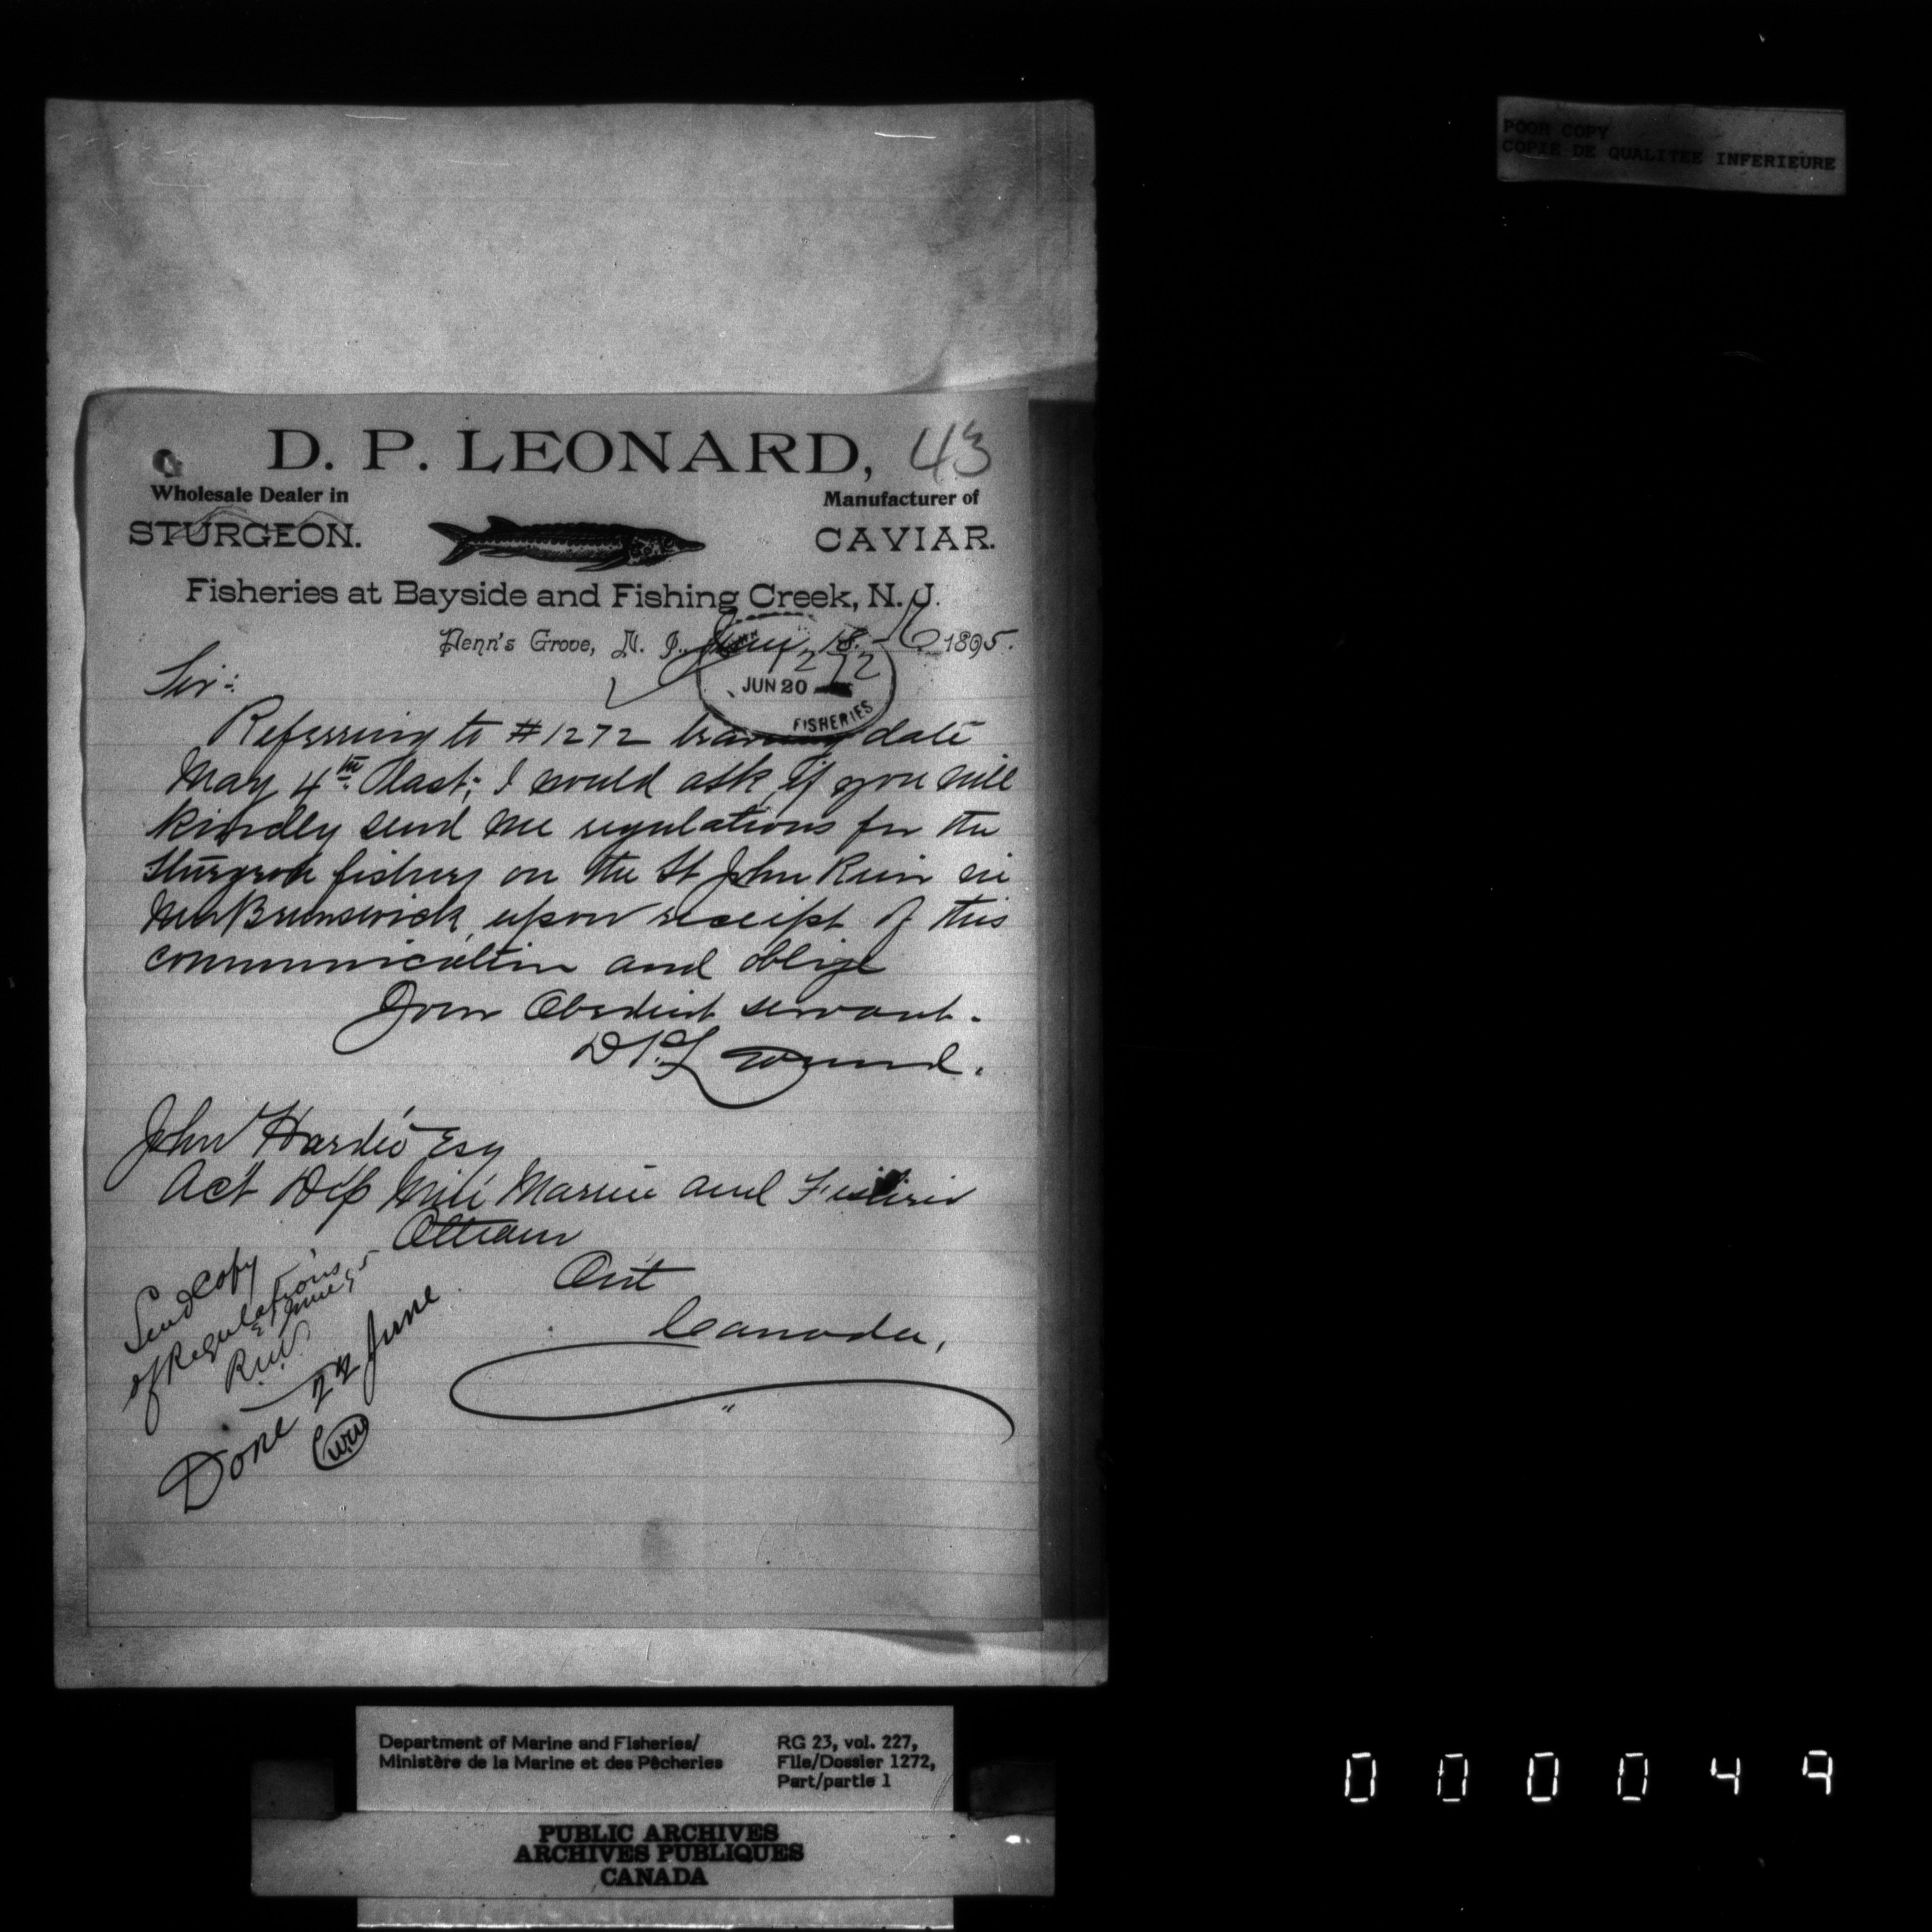 POOR COPY
COPIE DE QUALITEE INFERIEURE
D. P. LEONARD, 43
Wholesale Dealer in
STURGEON.
Manufacturer of
CAVIAR.
Fisheries at Bayside and Fishing Creek, N. J.
Penn's Grove, N. J., June 18 1895.
1272
JUN 20
FISHERIES
Sir:
Referring to #1272 bearing date
May 4th last; I would ask, if you will
kindly send me regulations for the
Sturgeon fishery on the St John River in
New Brunswick, upon receipt of this
communication and oblige
Your Obedient servant.
D P Leonard.
John Hardie Esq
Act Dep Mini Marine and Fisheries
Ottawa
Ont
Canada,
Send copy
of Regulations
Done 22 June
Department of Marine and Fisheries/
Ministère de la Marine et des Pêcheries
RG 23, vol. 227,
File/Dossier 1272,
Part/partie 1
PUBLIC ARCHIVES
ARCHIVES PUBLIQUES
CANADA
000049